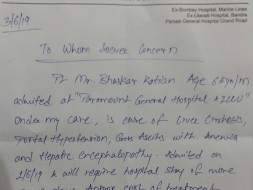 Ex-Bombay Hospital, Marine Lines
Ex-Lilavati Hospital, Bandra
Parsee General Hospital Grand Road
3/6/19
To Whom Soever Concern
Pt Mr. Bhaskar Age 65yr/M
admitted at "Paramount General Hospital & ICCU"
Under my care, is case of Liver Cirrhosis,
Portal Hypertension, Gross Ascitis with Anemia
and Hepatic Encephalopathy. Admitted on
2/6/19 & will require hospital stay of more
cost of treatment